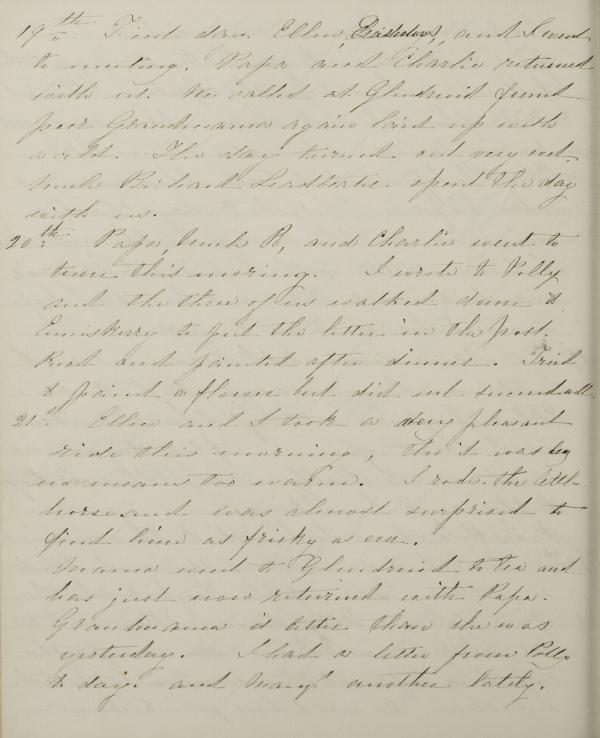 19th First day. Ellen, and I went
to meeting. Papa and Charlie returned
with us. We called at Glendruid found
poor Grandmama again laid up with
a cold. The day turned out very wet.
Uncle Richard Leadbeater spent the day
with us.
20th Papa Uncle R, and Charlie went to
town this morning. I wrote to Polly
and the three of us walked down to
Enniskerry to put the letter in the post.
Read and painted after dinner. Tried
to paint a flower but did not succeed well.
21st Ellen and I took a very pleasant
ride this morning, tho' it was by
no means too warm. I rode the little
horse and was almost surprised to
find him as frisky as ever.
Mama went to Glendruid to tea and
has just now returned with Papa.
Grandmama is better than she was
yesterday. I had a letter from Polly
to day. and Mary another lately.